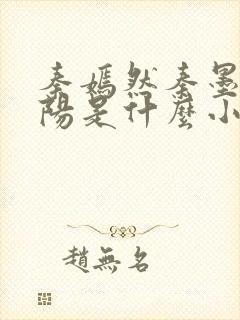 秦嫣然秦墨
陽是什麼小
趙無名